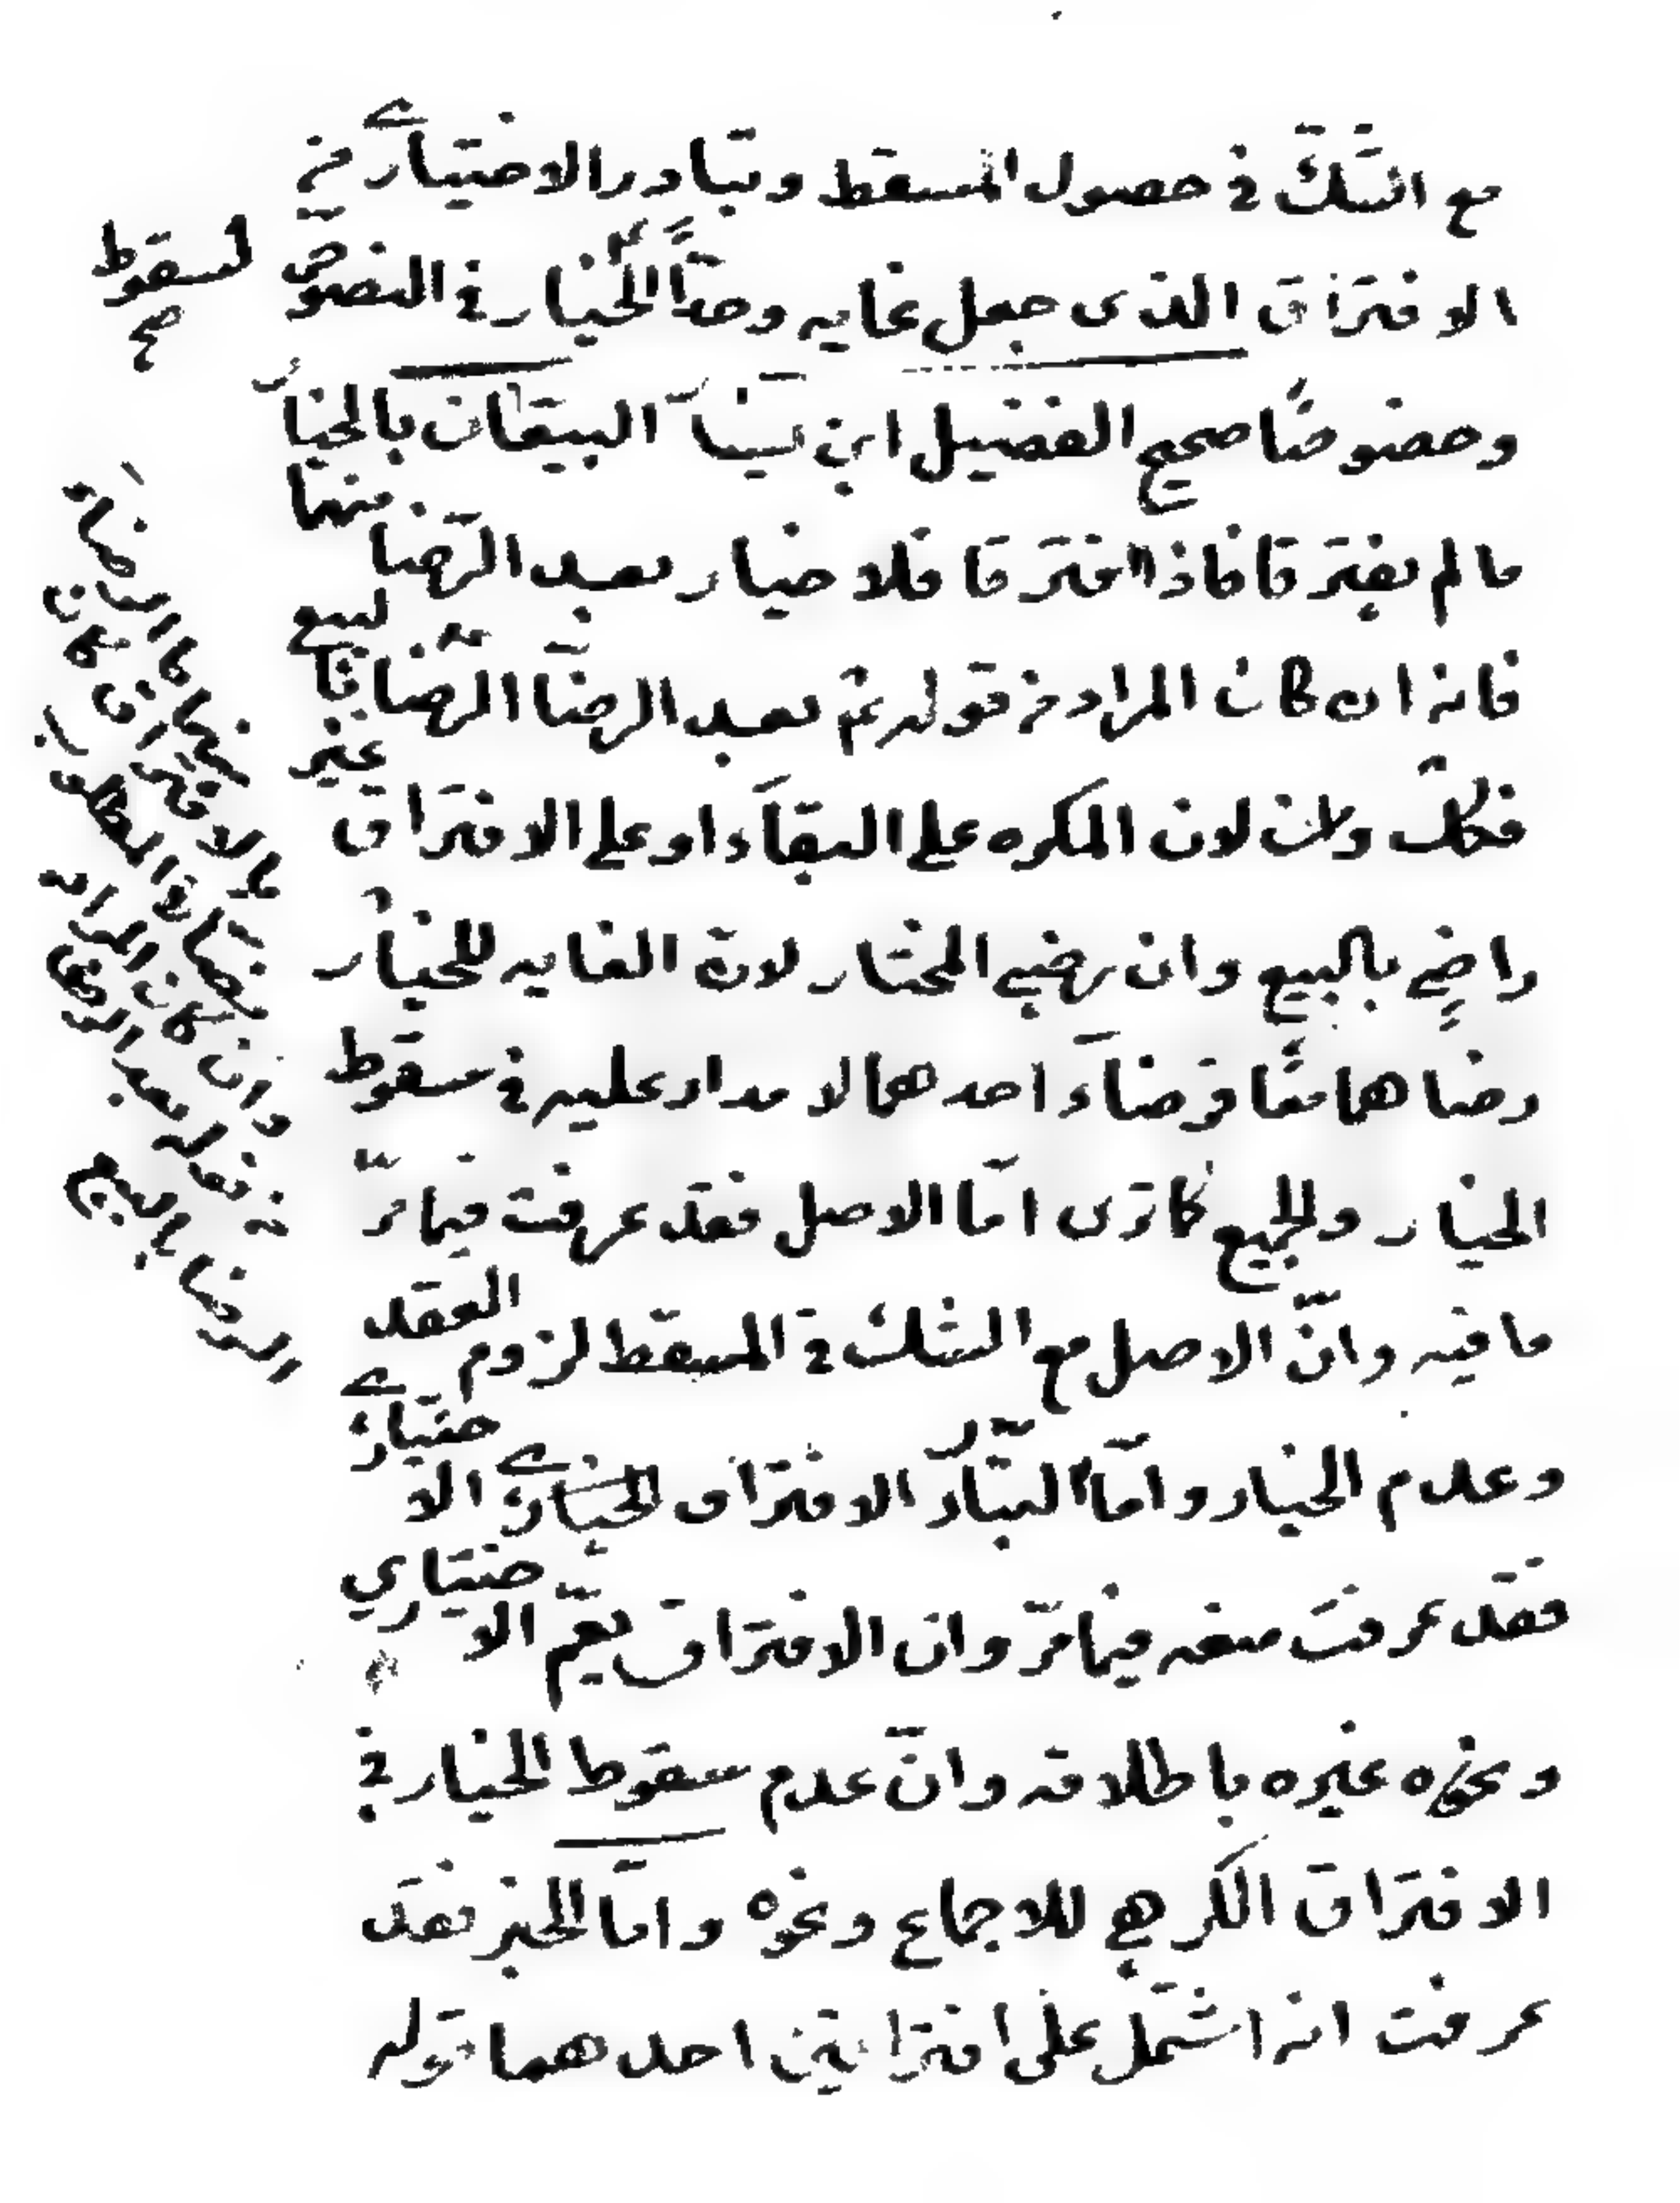 مع الشك في حصول المسقط وتبادر الاختياري من
الافتراق الذى جعل غايه وحدّاً الخيار في النصوص
لسقوط
صح
وخصوصًا صحيح الفضيل ابن البيعان بالخيار
ما لم يفترقا فاذا افترقا فلا خيار بعد الرضا منهما
فانه ان كان المراد من قوله ثم بعد الرضا الرضا بالبيع
فكك ولان المكره على البقاء او على الافتراق غير
راضٍ بالبيع وان رضي المختار لان الغايه للخيار
رضاهما معًا فرضاء احدهما لا مدار عليه في سقوط
الخيار وللجميع كما ترى امّا الاصل فقد عرفت فيما مرّ
ما فيه وانّ الاصل مع الشك في المسقط لزوم العقد
وعدم الخيار وامّا التبادر الافتراق الاختياري
فقد عرفت منعه فيما مرّ وان الافتراق يعمّ الاختياري
ونحوه غيره باطلاقه وانّ عدم سقوط الخيار في
الافتراق الكرهي للاجماع ونحوه وامّا الخبر فقد
عرفت انه اشتمل على افتراقين احدهما قوله
منهما كما الرضا
بالافتراق كان
في المطلوب
وان كان المراد
من قوله بعد الرضا
الرضا بالبيع